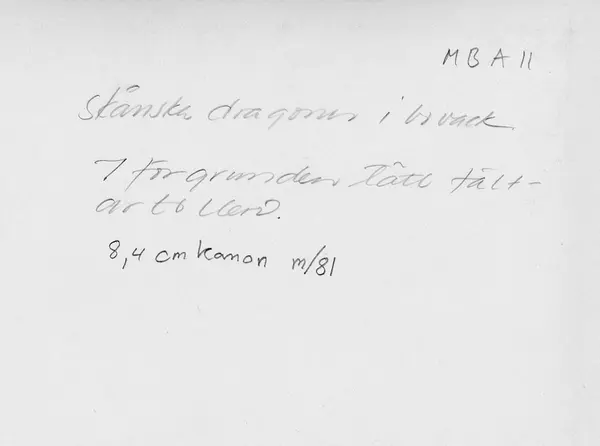 M B A 11
Skånska dragoner i bivack
I förgrunden lätt fält-
artilleri.
8,4 cm kanon m/81